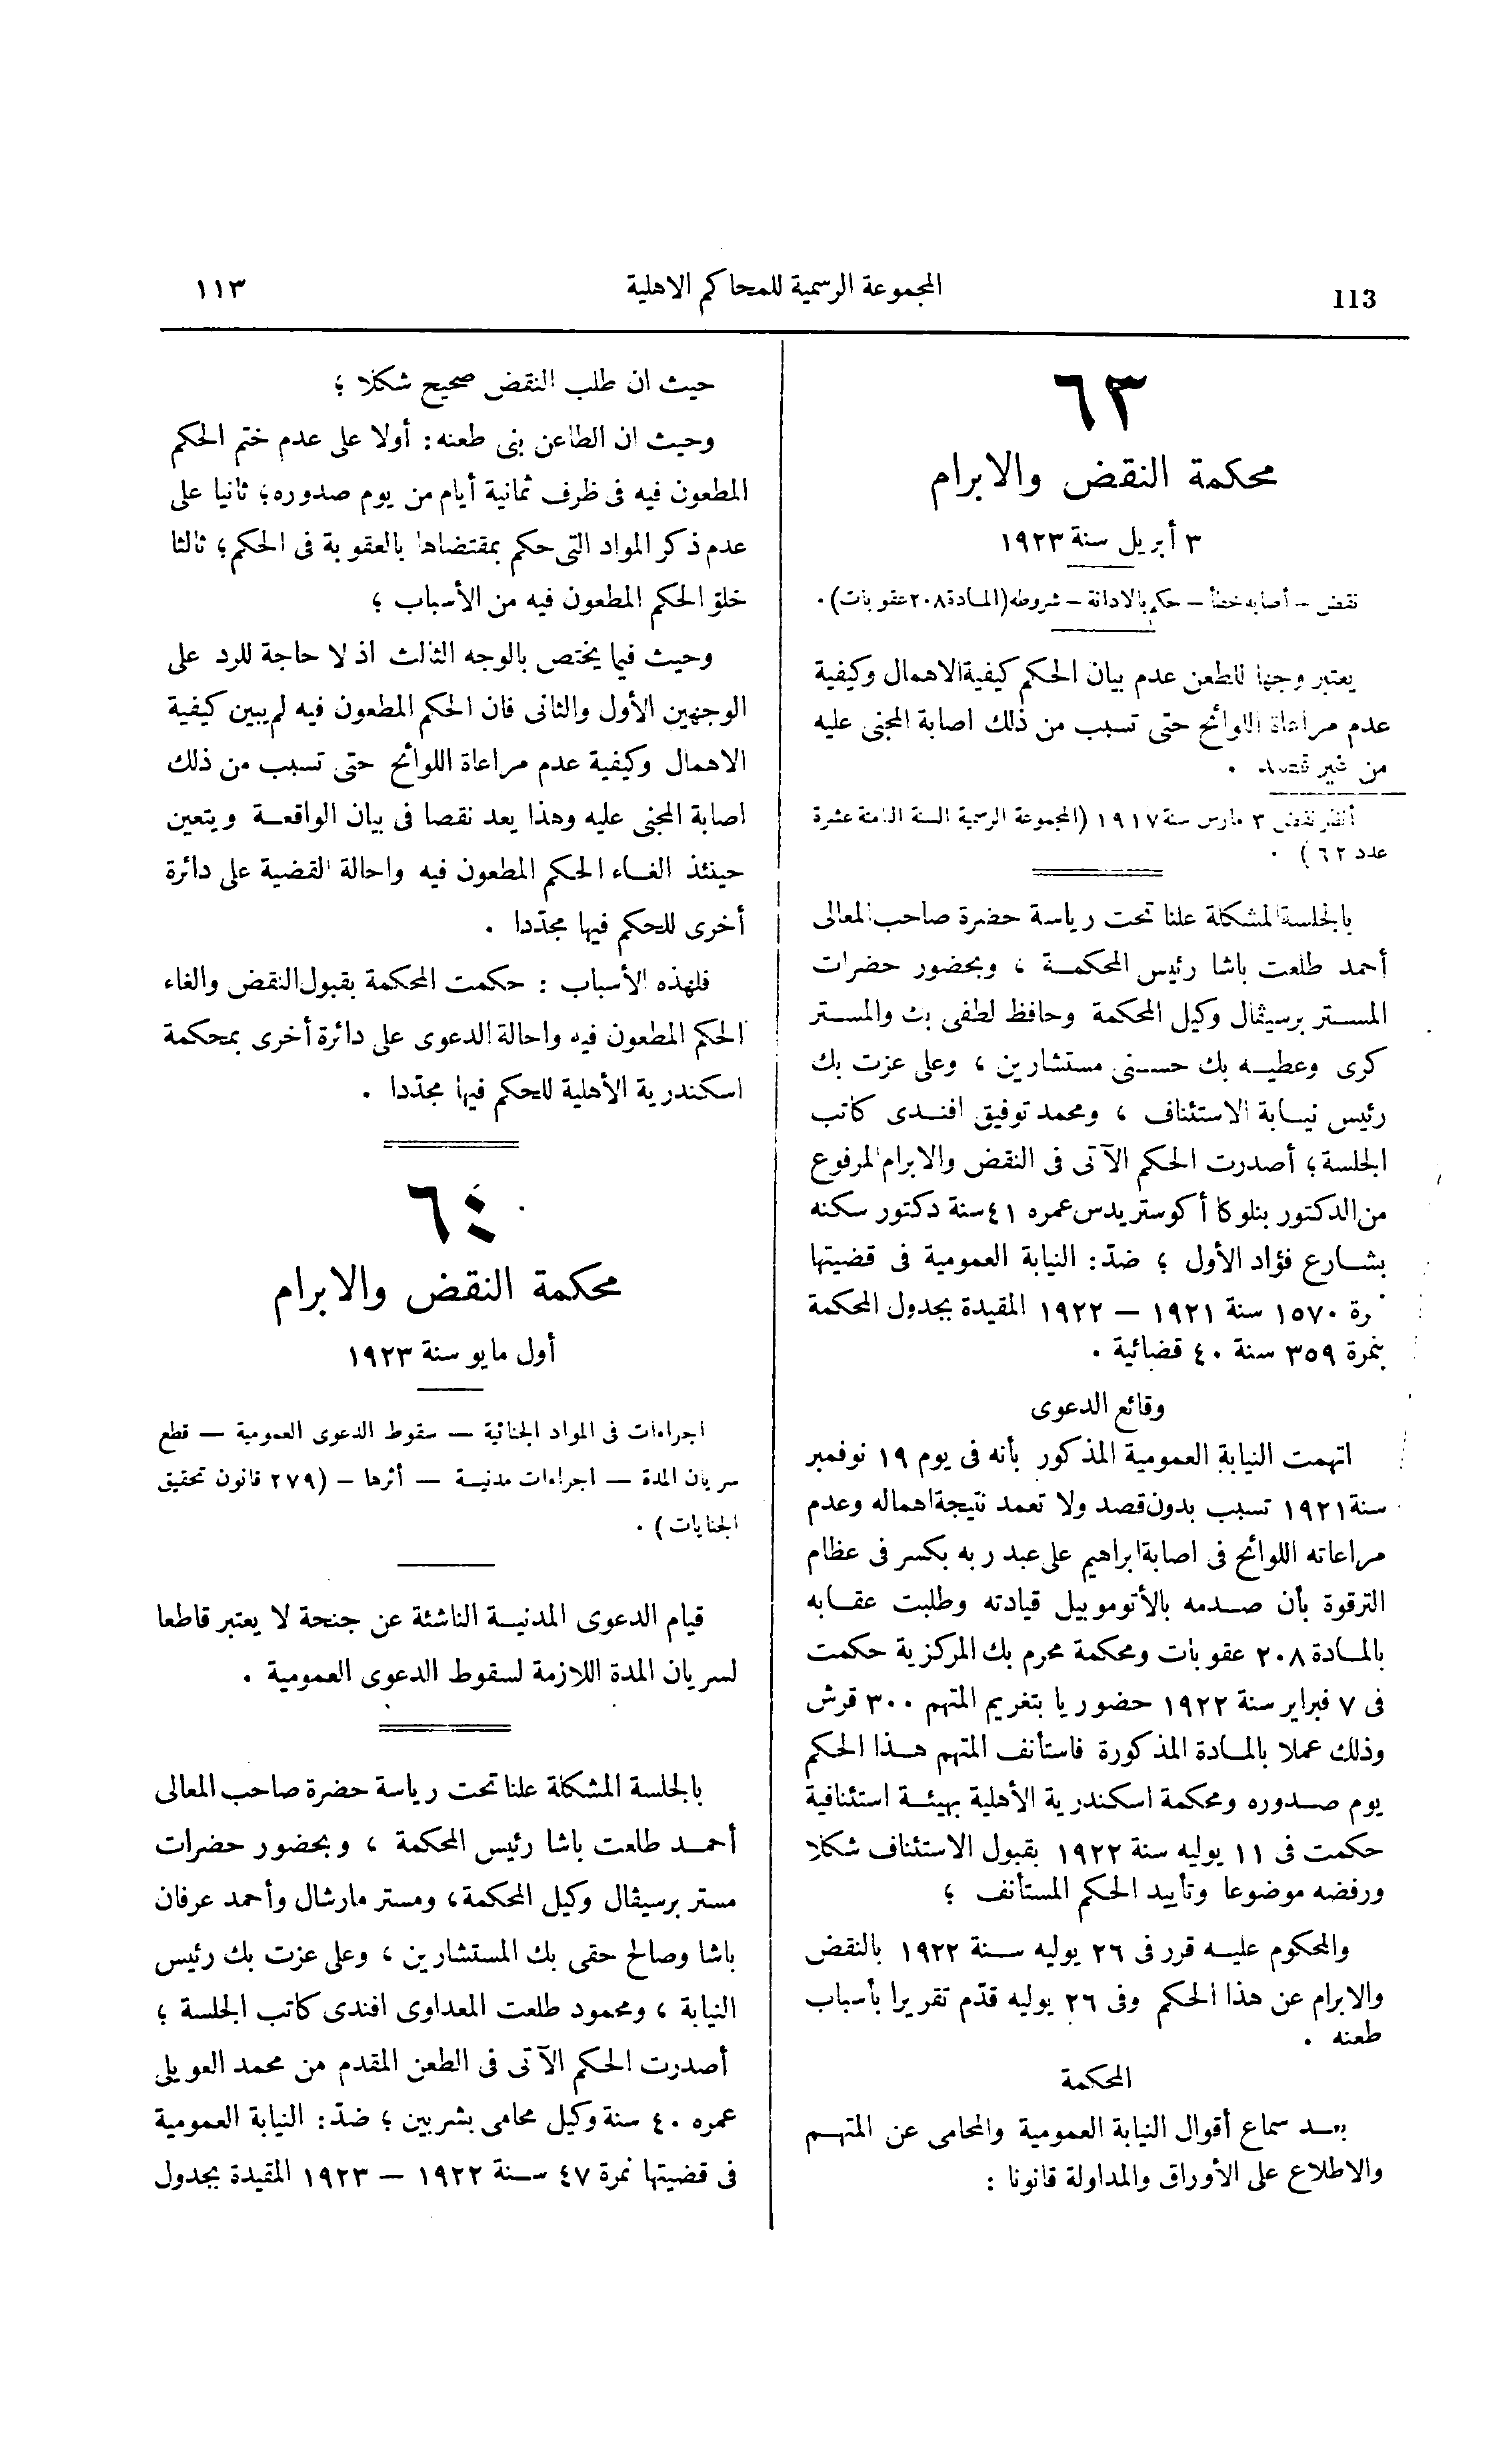 113
المجموعة الرسمية للمحاكم الاهلية
١١٣
٦٣
محكمة النقض والابرام
٣ أبريل سنة ١٩٢٣
نقض – أصابه خطأ – حكم بالادانة – شروطه (المادة ٢٠٨ عقوبات) .
يعتبر وجها للطعن عدم بيان الحكم كيفية الاهمال وكيفية
عدم مراعاة اللوائح حتى تسبب من ذلك اصابة المجنى عليه
من غير قصد .
أنظر نقض ٣ مارس سنة ١٩١٧ (المجموعة الرسمية السنة الثامنة عشرة
عدد ٦٢) .
بالجلسة المشكلة علنا تحت رياسة حضرة صاحب المعالى
أحمد طلعت باشا رئيس المحكمة ، وبحضور حضرات
المستر برسيڤال وكيل المحكمة وحافظ لطفى بك والمستر
كرى وعطيه بك حسنى مستشارين ، وعلى عزت بك
رئيس نيابة الاستئناف ، ومحمد توفيق افندى كاتب
الجلسة ؛ أصدرت الحكم الآتى فى النقض والابرام المرفوع
من الدكتور بنلوكا أكوستريدس عمره ٤١ سنة دكتور سكنه
بشارع فؤاد الأول ؛ ضدّ : النيابة العمومية فى قضيتها
رة ١٥٧٠ سنة ١٩٢١ – ١٩٢٢ المقيدة بجدول المحكمة
بنمرة ٣٥٩ سنة ٤٠ قضائية .
وقائع الدعوى
اتهمت النيابة العمومية المذكور بأنه فى يوم ١٩ نوفمبر
سنة ١٩٢١ تسبب بدون قصد ولا تعمد نتيجة اهماله وعدم
مراعاته اللوائح فى اصابة ابراهيم على عبد ربه بكسر فى عظام
الترقوة بأن صدمه بالأتوموبيل قيادته وطلبت عقابه
بالمادة ٢٠٨ عقوبات ومحكمة محرم بك المركزية حكمت
فى ٧ فبراير سنة ١٩٢٢ حضوريا بتغريم المتهم ٣٠٠ قرش
وذلك عملا بالمادة المذكورة فاستأنف المتهم هذا الحكم
يوم صدوره ومحكمة اسكندرية الأهلية بهيئة استئنافية
حكمت فى ١١ يوليه سنة ١٩٢٢ بقبول الاستئناف شكلا
ورفضه موضوعا وتأييد الحكم المستأنف ؛
والمحكوم عليه قرر فى ٢٦ يوليه سنة ١٩٢٢ بالنقض
والابرام عن هذا الحكم وفى ٢٦ يوليه قدّم تقريرا بأسباب
طعنه .
المحكمة
بعد سماع أقوال النيابة العمومية والمحامى عن المتهم
والاطلاع على الأوراق والمداولة قانونا :
حيث ان طلب النقض صحيح شكلا ؛
وحيث ان الطاعن بنى طعنه : أولا على عدم ختم الحكم
المطعون فيه فى ظرف ثمانية أيام من يوم صدوره ؛ ثانيا على
عدم ذكر المواد التى حكم بمقتضاها بالعقوبة فى الحكم ؛ ثالثا
خلق الحكم المطعون فيه من الأسباب ؛
وحيث فيما يختص بالوجه الثالث اذ لا حاجة للرد على
الوجهين الأول والثانى فان الحكم المطعون فيه لم يبين كيفية
الاهمال وكيفية عدم مراعاة اللوائح حتى تسبب من ذلك
اصابة المجنى عليه وهذا يعد نقصا فى بيان الواقعة ويتعين
حينئذ الغاء الحكم المطعون فيه واحالة القضية على دائرة
أخرى للحكم فيها مجدّدا .
فلهذه الأسباب : حكمت المحكمة بقبول النقض والغاء
الحكم المطعون فيه واحالة الدعوى على دائرة أخرى بمحكمة
اسكندرية الأهلية للحكم فيها مجدّدا .
٦٤
محكمة النقض والابرام
أول مايو سنة ١٩٢٣
اجراءات فى المواد الجنائية – سقوط الدعوى العمومية – قطع
سريان المدة – اجراءات مدنية – أثرها – (٢٧٩ قانون تحقيق
الجنايات) .
قيام الدعوى المدنية الناشئة عن جنحة لا يعتبر قاطعا
لسريان المدة اللازمة لسقوط الدعوى العمومية .
بالجلسة المشكلة علنا تحت رياسة حضرة صاحب المعالى
أحمد طلعت باشا رئيس المحكمة ، وبحضور حضرات
مستر برسيڤال وكيل المحكمة ، ومستر مارشال وأحمد عرفان
باشا وصالح حقى بك المستشارين ، وعلى عزت بك رئيس
النيابة ، ومحمود طلعت المعداوى افندى كاتب الجلسة ؛
أصدرت الحكم الآتى فى الطعن المقدم من محمد العويلى
عمره ٤٠ سنة وكيل محامى بشربين ؛ ضدّ : النيابة العمومية
فى قضيتها نمرة ٤٧ سنة ١٩٢٢ – ١٩٢٣ المقيدة بجدول